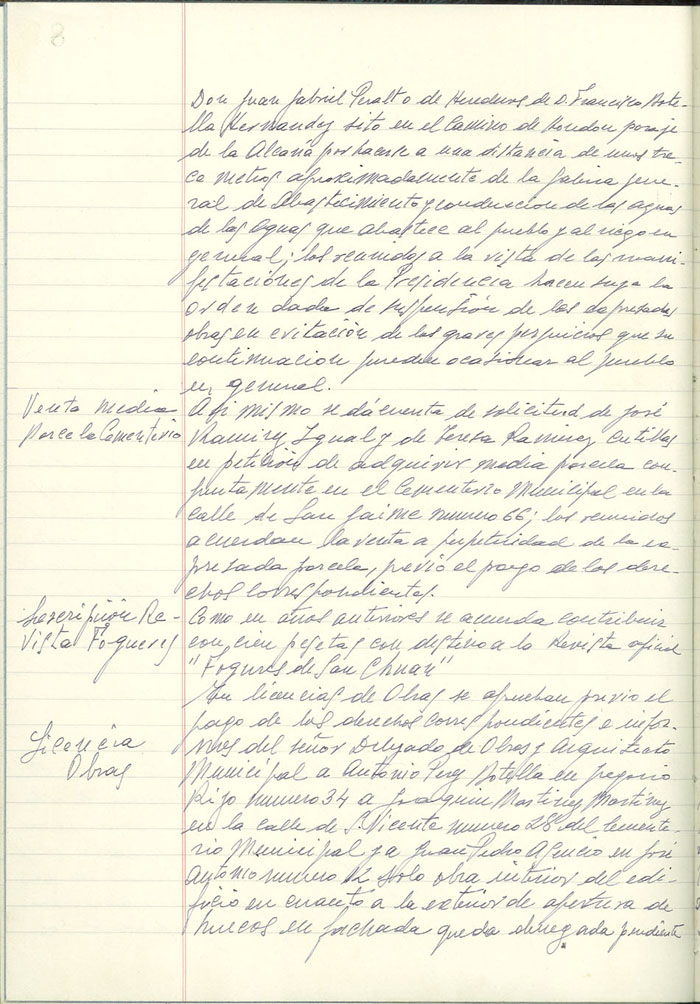 8
Don Juan Gabriel Peralto de Herederos de D. Francisco Bote-
lla Hernandez sito en el Camino de Hondon paraje
de la Alcaná por hacerse a una distancia de unos tre-
ce metros aproximadamente de la galeria gene-
ral de Abastecimiento y conducción de las aguas
de las Aguas que abastece al pueblo y al riego en
general; los reunidos a la vista de las mani-
festaciónes de la Presidencia hacen suya la
orden dada de suspensión de las expresadas
obras en evitación de los graves perjuicios que su
continuacion pueden ocasionar al pueblo
en general.
Venta media
Parcela Cementerio
Asi mismo se dá cuenta de solicitud de José
Ramirez Igual y de Teresa Ramirez Cutillas
en petición de adquirir media parcela con-
juntamente en el Cementerio Municipal en la
calle de San Jaime numero 66; los reunidos
acuerdan la venta a perpetuidad de la ex-
presada parcela, previo el pago de los dere-
chos correspondientes.
Suscripción Re-
vista Fogueres
Como en años anteriores se acuerda contribuir
con cien pesetas con destino a la Revista oficial
"Fogures de San Chuan"
Licencia
Obras
En licencias de Obras se aprueban previo el
pago de los derechos correspondientes e infor-
mes del señor Delegado de Obras y Arquitecto
Municipal a Antonio Botella en Gregorio
Rizo numero 34 a Joaquin Martinez Martinez
en la calle de S. Vicente numero 28 del Cemente-
rio Municipal y a Juan Pedro Asencio en José
Antonio numero 12 solo obra interior del edi-
ficio en cuanto a la exterior de apertura de
huecos en fachada queda denegada pendiente